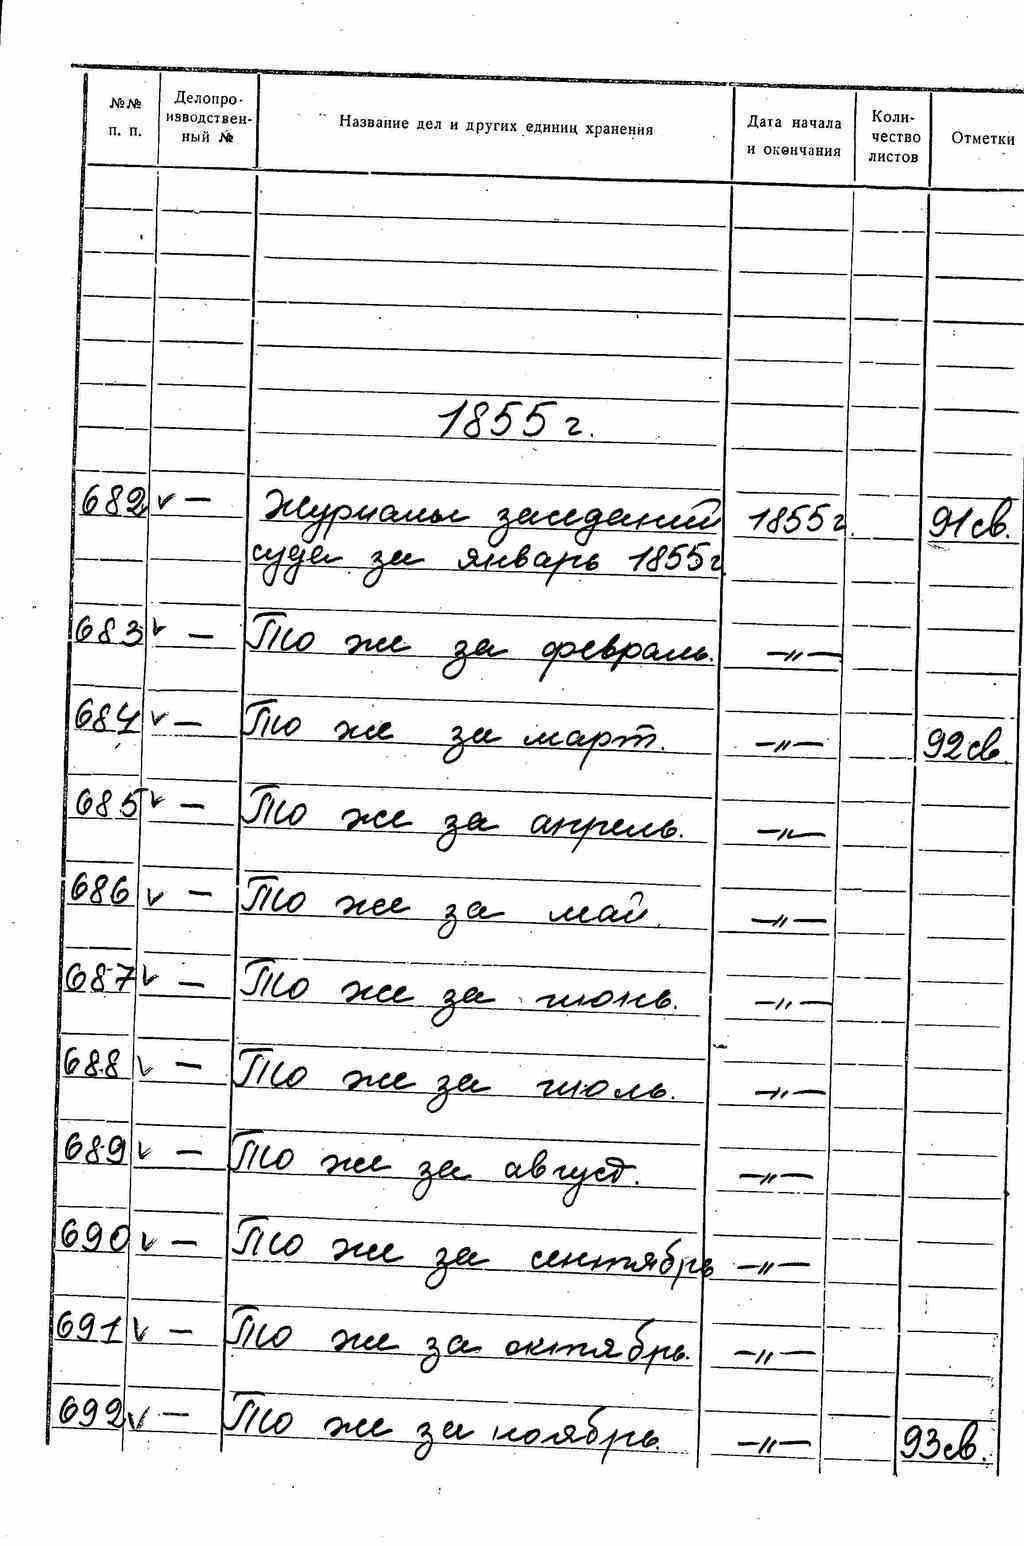 №№ п. п. Делопро- изводствен- ный № Название дел и других единиц хранения Дата начала и окончания Коли- чество листов Отметки
1855 г.
682 v — Журналы заседаний 1855 г. 91 св.
суда за январь 1855 г.
683 v — То же за февраль. —"—
684 v — То же за март. —"— 92 св.
685 v — То же за апрель. —"—
686 v — То же за май. —"—
687 v — То же за июнь. —"—
688 v — То же за июль. —"—
689 v — То же за август. —"—
690 v — То же за сентябрь —"—
691 v — То же за октябрь. —"—
692 v — То же за ноябрь. —"— 93 св.